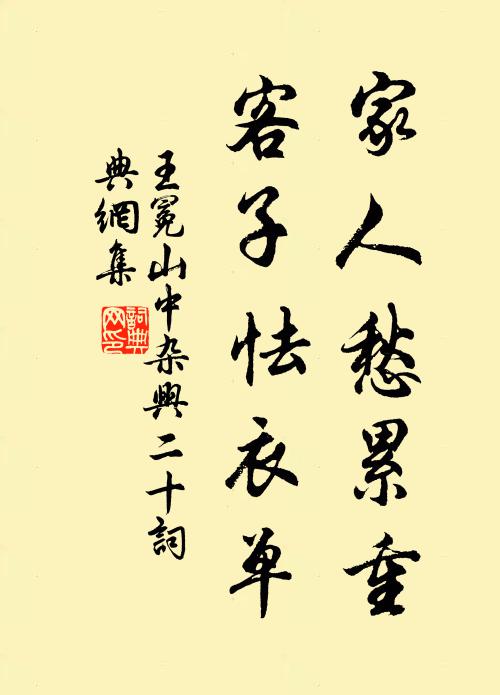 家人愁累重
客子怯衣单
王冕山中杂興二十詞
典網集
詞典
网印